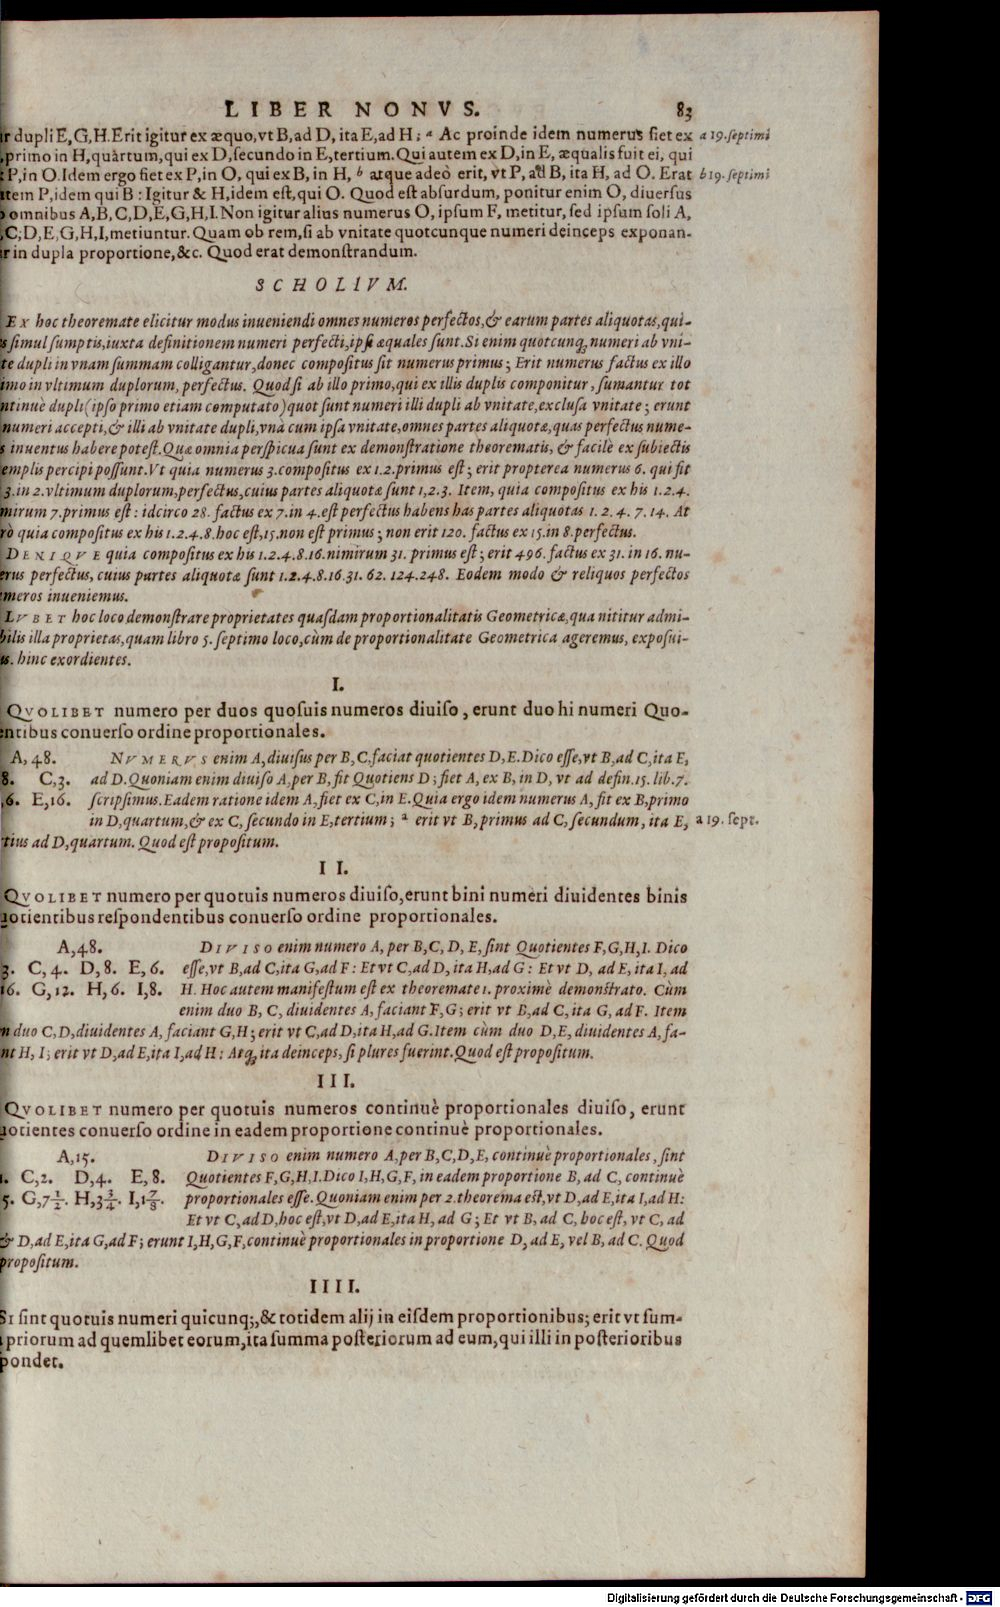 LIBER NONVS. 83
dupli E,G,H.Erit igitur ex æquo,vt B,ad D, ita E,ad H; a Ac proinde idem numerus fiet ex a 19.septimi
primo in H,quartum,qui ex D,secundo in E,tertium.Qui autem ex D,in E, æqualis fuit ei, qui
P,in O.Idem ergo fiet ex P,in O, qui ex B, in H, b atque adeò erit, vt P, ad B, ita H, ad O. Erat b 19.septimi
item P,idem qui B : Igitur & H,idem est,qui O. Quod est absurdum, ponitur enim O, diuersus
omnibus A,B,C,D,E,G,H,I.Non igitur alius numerus O, ipsum F, metitur, sed ipsum soli A,
,C;D,E,G,H,I,metiuntur. Quam ob rem,si ab vnitate quotcunque numeri deinceps exponan-
in dupla proportione,&c. Quod erat demonstrandum.
SCHOLIVM.
Ex hoc theoremate elicitur modus inueniendi omnes numeros perfectos,& earum partes aliquotas,qui-
simul sumptis,iuxta definitionem numeri perfecti,ipsi æquales sunt.Si enim quotcunq; numeri ab vni-
te dupli in vnam summam colligantur,donec compositus sit numerus primus ; Erit numerus factus ex illo
imo in vltimum duplorum, perfectus. Quod si ab illo primo,qui ex illis duplis componitur, sumantur tot
ntinuè dupli(ipso primo etiam computato)quot sunt numeri illi dupli ab vnitate,exclusa vnitate ; erunt
numeri accepti,& illi ab vnitate dupli,vnà cum ipsa vnitate,omnes partes aliquotæ,quas perfectus nume-
s inuentus habere potest.Quæ omnia perspicua sunt ex demonstratione theorematis, & facilè ex subiectis
emplis percipi possunt.Vt quia numerus 3.compositus ex 1.2.primus est ; erit propterea numerus 6. qui fit
3.in 2.vltimum duplorum,perfectus,cuius partes aliquotæ sunt 1,2.3. Item, quia compositus ex his 1.2.4.
mirum 7.primus est : idcirco 28. factus ex 7.in 4.est perfectus habens has partes aliquotas 1. 2. 4. 7. 14. At
rò quia compositus ex his 1.2.4.8.hoc est,15.non est primus ; non erit 120. factus ex 15.in 8.perfectus.
DENIQVE quia compositus ex his 1.2.4.8.16.nimirum 31. primus est ; erit 496. factus ex 31.in 16. nu-
erus perfectus, cuius partes aliquotæ sunt 1.2.4.8.16.31. 62. 124.248. Eodem modo & reliquos perfectos
meros inueniemus.
LVBET hoc loco demonstrare proprietates quasdam proportionalitatis Geometricæ,qua nititur admi-
bilis illa proprietas,quam libro 5. septimo loco,cùm de proportionalitate Geometrica ageremus, exposui-
us. hinc exordientes.
I.
QVOLIBET numero per duos quosuis numeros diuiso, erunt duo hi numeri Quo-
entibus conuerso ordine proportionales.
A, 48. NVMERVS enim A,diuisus per B,C,faciat quotientes D,E.Dico esse,vt B,ad C,ita E,
8. C,3. ad D.Quoniam enim diuiso A,per B,fit Quotiens D ; fiet A, ex B, in D, vt ad defin.15. lib.7.
,6. E,16. scripsimus.Eadem ratione idem A,fiet ex C,in E.Quia ergo idem numerus A, fit ex B,primo
in D,quartum,& ex C, secundo in E,tertium ; a erit vt B,primus ad C, secundum, ita E, a 19. sept.
tius ad D,quartum. Quod est propositum.
II.
QVOLIBET numero per quotuis numeros diuiso,erunt bini numeri diuidentes binis
uotientibus respondentibus conuerso ordine proportionales.
A,48. DIVISO enim numero A, per B,C, D, E, sint Quotientes F,G,H,I. Dico
3. C, 4. D, 8. E, 6. esse,vt B,ad C,ita G,ad F : Et vt C,ad D, ita H,ad G : Et vt D, ad E, ita I, ad
16. G,12. H, 6. I,8. H. Hoc autem manifestum est ex theoremate 1. proximè demonstrato. Cùm
enim duo B, C, diuidentes A, faciant F, G ; erit vt B,ad C, ita G, ad F. Item
n duo C,D,diuidentes A, faciant G,H ; erit vt C,ad D,ita H,ad G.Item cùm duo D,E, diuidentes A, fa-
nt H, I ; erit vt D,ad E,ita I,ad H : Atq; ita deinceps, si plures fuerint.Quod est propositum.
III.
QVOLIBET numero per quotuis numeros continuè proportionales diuiso, erunt
uotientes conuerso ordine in eadem proportione continuè proportionales.
A,15. DIVISO enim numero A,per B,C,D,E, continuè proportionales, sint
1. C,2. D,4. E,8. Quotientes F,G,H,I.Dico I,H,G,F, in eadem proportione B, ad C, continuè
5. G,7 1/2. H,3 3/4. I,1 7/8. proportionales esse.Quoniam enim per 2.theorema est,vt D,ad E,ita I,ad H:
Et vt C,ad D,hoc est,vt D,ad E,ita H, ad G ; Et vt B, ad C, hoc est, vt C, ad
& D,ad E,ita G,ad F ; erunt I,H,G,F,continuè proportionales in proportione D, ad E, vel B, ad C. Quod
propositum.
IIII.
SI sint quotuis numeri quicunq;,& totidem alij in eisdem proportionibus; erit vt sum-
priorum ad quemlibet eorum,ita summa posteriorum ad eum,qui illi in posterioribus
pondet.
Digitalisierung gefördert durch die Deutsche Forschungsgemeinschaft - DFG